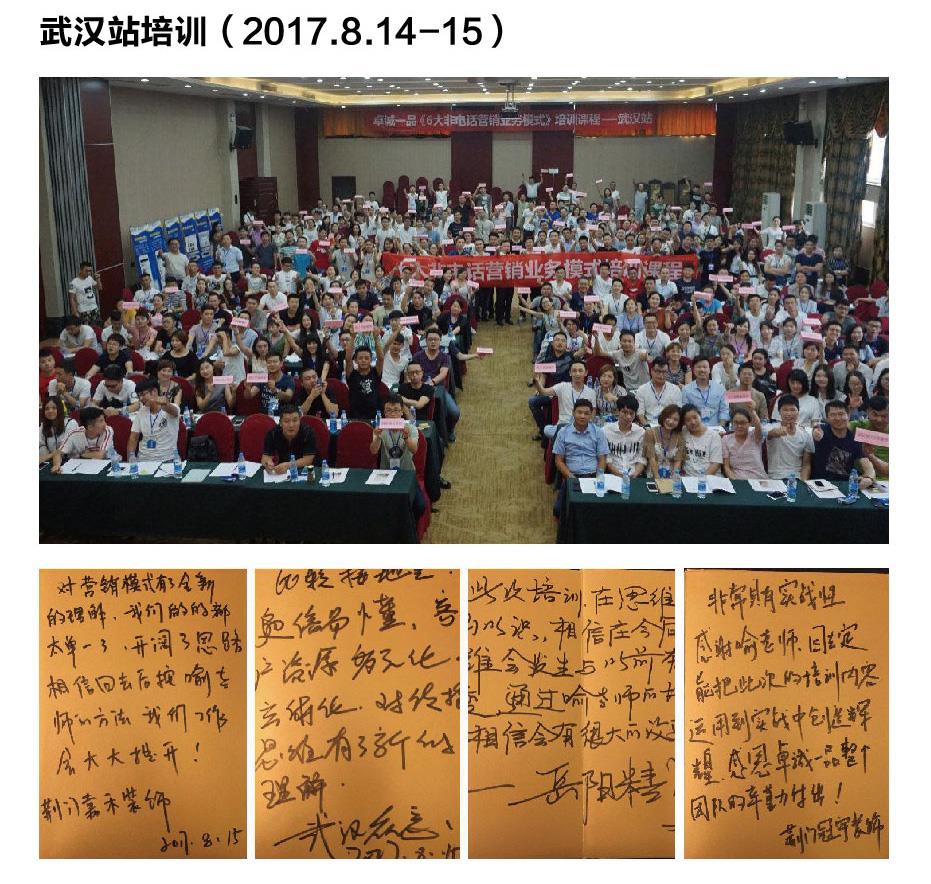 武汉站培训（2017.8.14-15）
卓诚一品《6大非电话营销业务模式》培训课程——武汉站
大非电话营销业务模式培训课程
对营销模式有了全新
的理解，我们做的都
太单一了，开阔了思路
相信回去后按喻老
师的方法 我们工作
会大大提升！
荆门嘉禾装饰
2017.8.15
比较接地气
易懂，客
户资源多元化
对
思维有了新的
理解．
武汉
2017.8.15
此次培训，在思维
相信在今后
维会发生与以前
变，通过喻老师的
相信会有很大的改
——岳阳
非常具有实战性
感谢喻老师，回去定
能把此次的培训内容
运用到实战中创造辉
煌，感恩卓诚一品整个
团队的辛勤付出！
荆门冠宇装饰